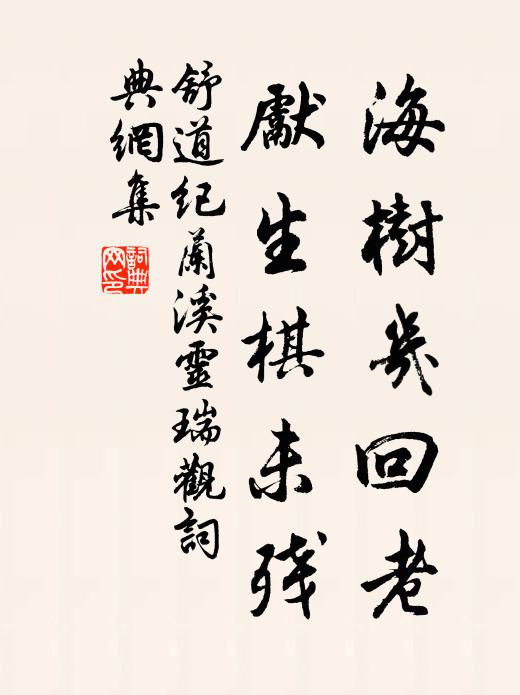 海樹幾回老
獻生棋未残
舒道紀蘭溪靈瑞觀詞
典網集
詞典
网印